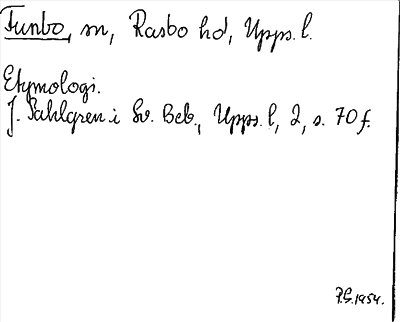 Funbo, sn, Rasbo hd, Upps. l.
Etymologi.
J. Sahlgren i Sv. Beb., Upps. l, 2, s. 70 f.
1954.